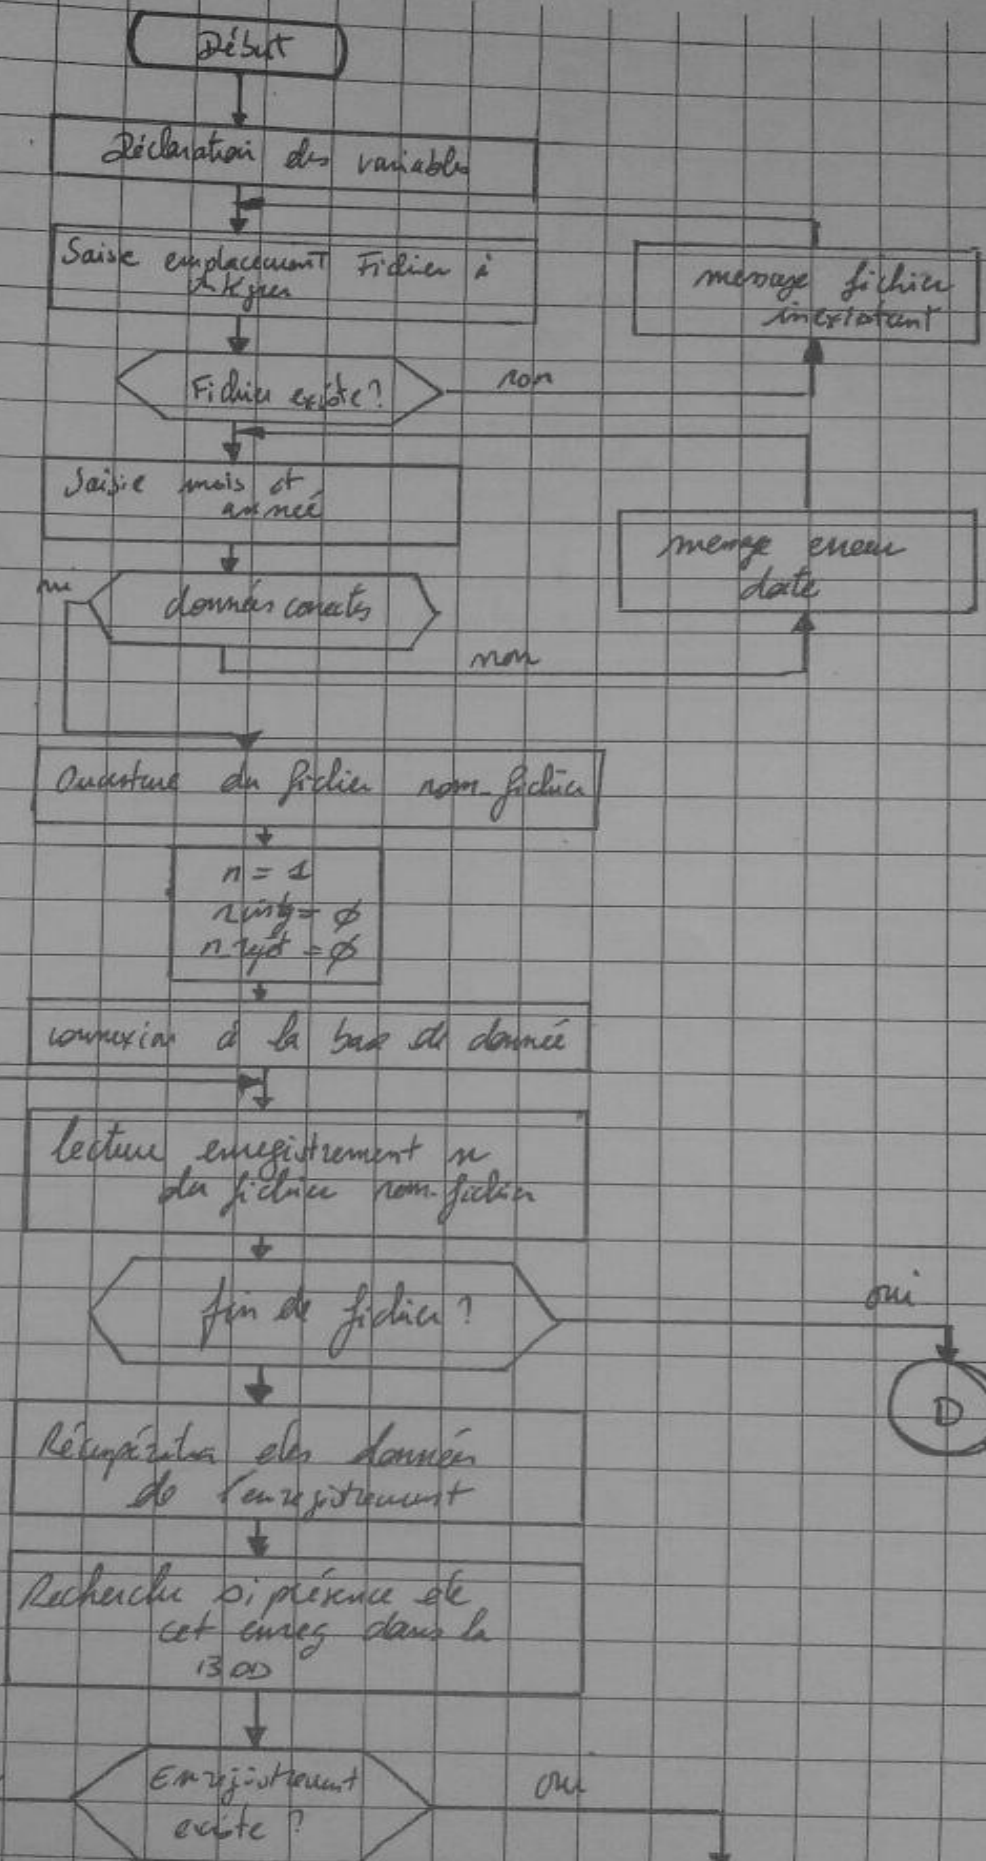 Début
Déclaration des variables
Saisie emplacement Fichier à
intégrer
message fichier
inexistant
Fichier existe?
non
Saisie mois et
année
message erreur
date
oui
données correctes
non
Ouverture du fichier nom_fichier
n = 1
n intg = ø
n rejet = ø
connexion à la base de donnée
lecture enregistrement n
du fichier nom_fichier
fin de fichier ?
oui
D
Récupération des données
de l'enregistrement
Recherche si présence de
cet enreg dans la
BDD
Enregistrement
existe ?
oui